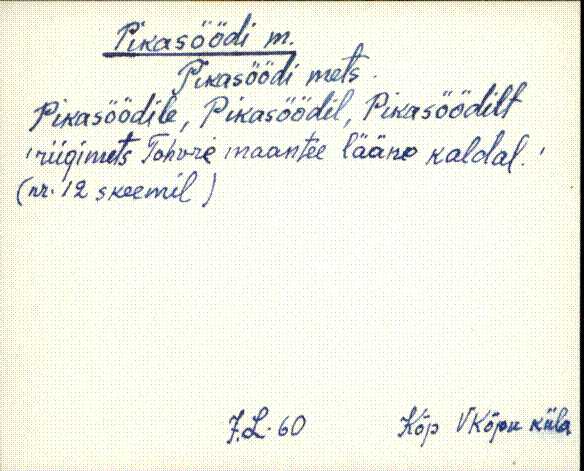 Pikasöödi m.
Pikasöödi mets.
Pikasöödile, Pikasöödil, Pikasöödilt
'riigimets Tohvre maantee lääne kaldal.'
(nr. 12 skeemil)
J.L. 60 Kõp VKõpu küla